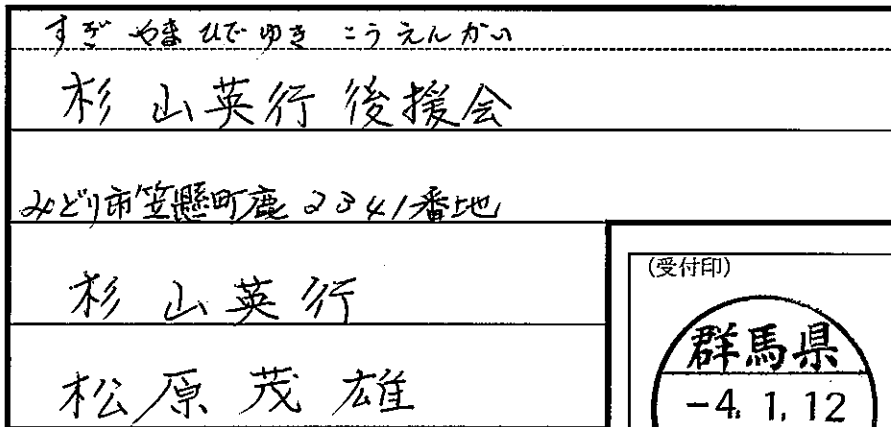 すぎやまひでゆき こうえんかい
杉山英行後援会
みどり市笠懸町鹿2341番地
杉山英行
松原茂雄
(受付印)
群馬県
-4.1.12